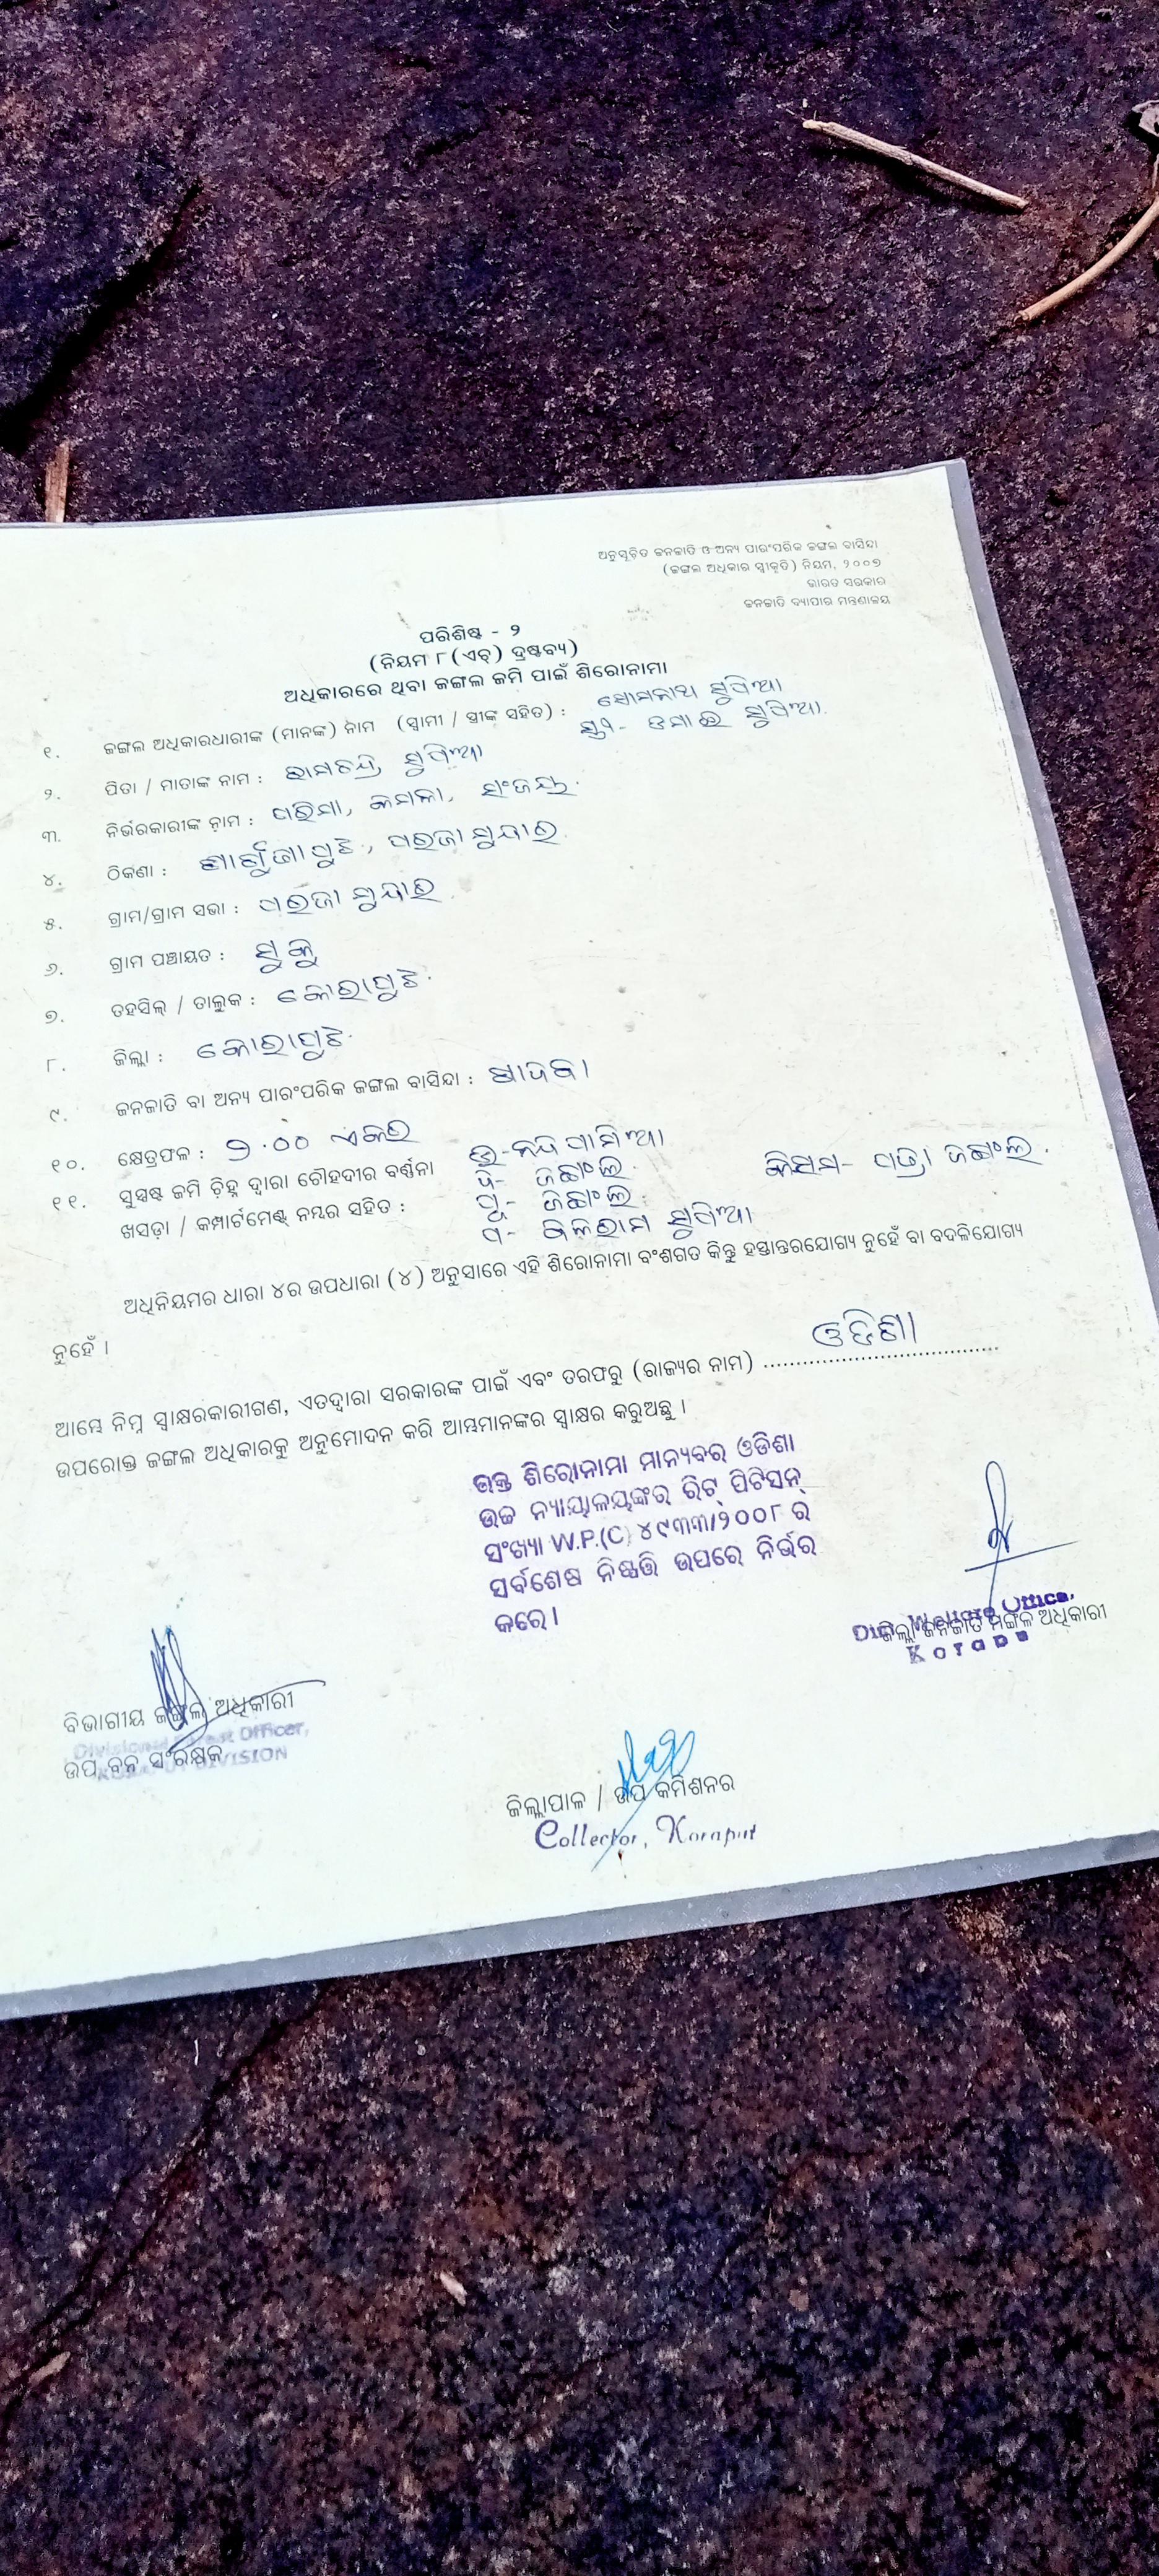 ଅନୁସୂଚିତ ଜନଜାତି ଓ ଅନ୍ୟ ପାରଂପରିକ ଜଙ୍ଗଲ ବାସିନ୍ଦା
(ଜଙ୍ଗଲ ଅଧିକାର ସ୍ୱୀକୃତି) ନିୟମ, ୨୦୦୭
ଭାରତ ସରକାର
ଜନଜାତି ବ୍ୟାପାର ମନ୍ତ୍ରଣାଳୟ
ପରିଶିଷ୍ଟ - ୨
(ନିୟମ ୮(ଏଚ୍) ଦ୍ରଷ୍ଟବ୍ୟ)
ଅଧିକାରରେ ଥିବା ଜଙ୍ଗଲ ଜମି ପାଇଁ ଶିରୋନାମା
୧. ଜଙ୍ଗଲ ଅଧିକାରଧାରୀଙ୍କ (ମାନଙ୍କ) ନାମ (ସ୍ୱାମୀ / ସ୍ତ୍ରୀଙ୍କ ସହିତ) : ସୋମନାଥ
୨. ପିତା / ମାତାଙ୍କ ନାମ : ରାମଚନ୍ଦ୍ର
୩. ନିର୍ଭରକାରୀଙ୍କ ନାମ : ପରିମା, କମଳା, ସଂଜୟ
୪. ଠିକଣା : ପରଜା ମୁନ୍ଦାର
୫. ଗ୍ରାମ/ଗ୍ରାମ ସଭା : ପରଜା ମୁନ୍ଦାର
୬. ଗ୍ରାମ ପଞ୍ଚାୟତ :
୭. ତହସିଲ୍ / ତାଲୁକ : କୋରାପୁଟ
୮. ଜିଲ୍ଲା : କୋରାପୁଟ
୯. ଜନଜାତି ବା ଅନ୍ୟ ପାରଂପରିକ ଜଙ୍ଗଲ ବାସିନ୍ଦା :
୧୦. କ୍ଷେତ୍ରଫଳ : ୨.୦୦ ଏକର
୧୧. ସୁସ୍ପଷ୍ଟ ଜମି ଚିହ୍ନ ଦ୍ୱାରା ଚୌହଦୀର ବର୍ଣ୍ଣନା
ଖସଡ଼ା / କମ୍ପାର୍ଟମେଣ୍ଟ୍ ନମ୍ବର ସହିତ :
ଦ- ଜଙ୍ଗଲ
ପୂ- ଜଙ୍ଗଲ
ପ- ବଳରାମ
କିସମ- ପତ୍ରା ଜଙ୍ଗଲ
ଅଧିନିୟମର ଧାରା ୪ର ଉପଧାରା (୪) ଅନୁସାରେ ଏହି ଶିରୋନାମା ବଂଶଗତ କିନ୍ତୁ ହସ୍ତାନ୍ତରଯୋଗ୍ୟ ନୁହେଁ ବା ବଦଳିଯୋଗ୍ୟ
ନୁହେଁ ।
ଆମ୍ଭେ ନିମ୍ନ ସ୍ୱାକ୍ଷରକାରୀଗଣ, ଏତଦ୍ଦ୍ୱାରା ସରକାରଙ୍କ ପାଇଁ ଏବଂ ତରଫରୁ (ରାଜ୍ୟର ନାମ) ଓଡିଶା
ଉପରୋକ୍ତ ଜଙ୍ଗଲ ଅଧିକାରକୁ ଅନୁମୋଦନ କରି ଆମ୍ଭମାନଙ୍କର ସ୍ୱାକ୍ଷର କରୁଅଛୁ ।
ଉକ୍ତ ଶିରୋନାମା ମାନ୍ୟବର ଓଡିଶା
ଉଚ୍ଚ ନ୍ୟାୟାଳୟଙ୍କର ରିଟ୍ ପିଟିସନ୍
ସଂଖ୍ୟା W.P.(C) ୪୯୩୩/୨୦୦୮ ର
ସର୍ବଶେଷ ନିଷ୍ପତ୍ତି ଉପରେ ନିର୍ଭର
କରେ ।
ଜିଲ୍ଲା ଜନଜାତି ମଙ୍ଗଳ ଅଧିକାରୀ
ବିଭାଗୀୟ ଜଙ୍ଗଲ ଅଧିକାରୀ
Officer,
ଉପ ବନ ସଂରକ୍ଷକ
DIVISION
ଜିଲ୍ଲାପାଳ / ଉପ କମିଶନର
Collector, Koraput